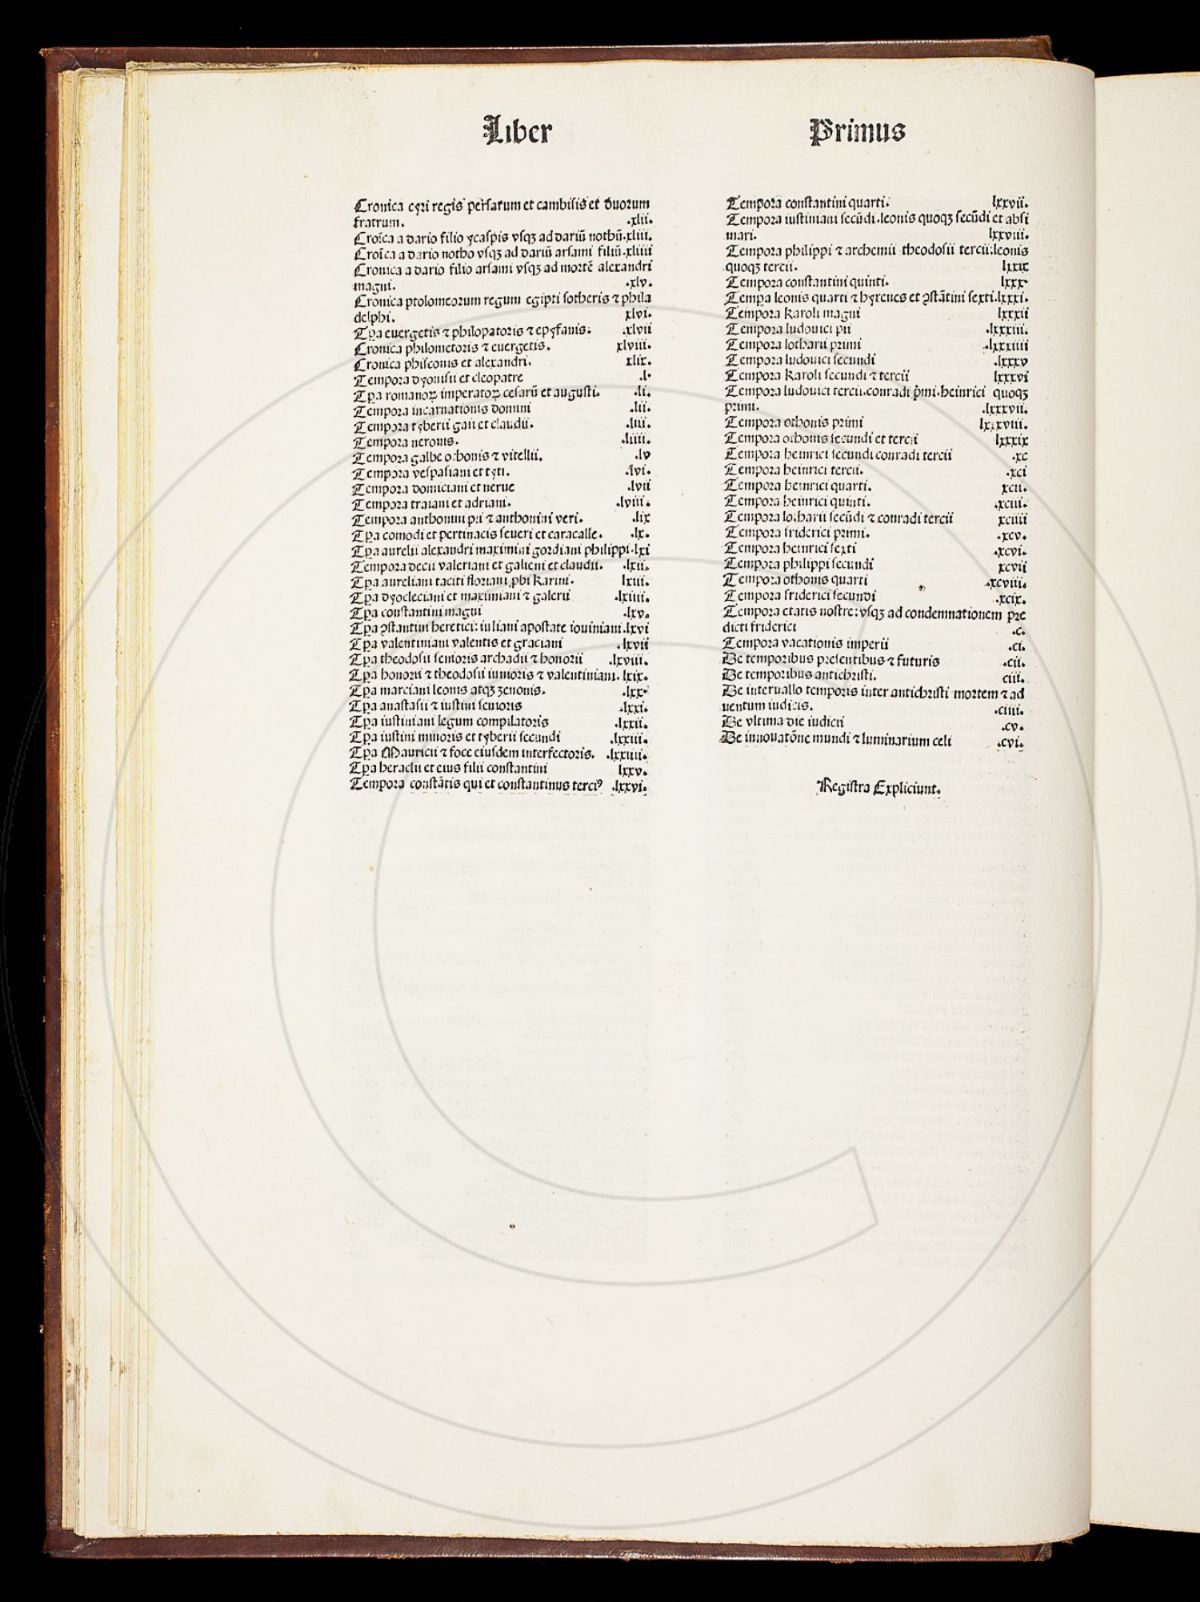 Liber Primus
Cronica cyri regis persarum et cambisis et duorum
fratrum. .xlii.
Croīca a dario filio ycaspis vsqꝫ ad dariū nothū.xliii.
Croīca a dario notho vsqꝫ ad dariū arsami filiū.xliiii
Cronica a dario filio arsami vsqꝫ ad mortē alexandri
magni. .xlv.
Cronica ptolomeorum regum egipti sotheris ⁊ phila
delphi. xlvi.
Tꝑa euergetis ⁊ philopatoris ⁊ epyfanis. .xlvii
Cronica philometoris ⁊ euergetis. xlviii.
Cronica phisconis et alexandri. xlix.
Tempora dyonisii et cleopatre .l.
Tꝑa romanoꝝ imperatoꝝ cesarū et augusti. .li.
Tempora incarnationis domini .lii.
Tempora tyberii gaii et claudii. .liii.
Tempora neronis. .liiii.
Tempora galbe othonis ⁊ vitellii. .lv
Tempora vespasiani et tyti. .lvi.
Tempora domiciani et nerue .lvii
Tempora traiani et adriani. .lviii.
Tempora anthonini pii ⁊ anthonini veri. .lix
Tꝑa comodi et pertinacis seueri et caracalle. .lx.
Tꝑa aurelii alexandri maximini gordiani philippi.lxi
Tempora decii valeriani et galieni et claudii. .lxii.
Tꝑa aureliani taciti floriani ꝓbi Karini. lxiii.
Tꝑa dyocleciani et maximiani ⁊ galerii .lxiiii.
Tꝑa constantini magni .lxv.
Tꝑa ꝯstantini heretici: iuliani apostate iouiniani.lxvi
Tꝑa valentiniani valentis et graciani .lxvii
Tꝑa theodosii senioris archadii ⁊ honorii .lxviii.
Tꝑa honorii ⁊ theodosii iunioris ⁊ valentiniani. lxix.
Tꝑa marciani leonis atqꝫ zenonis. .lxx.
Tꝑa anastasii ⁊ iustini senioris .lxxi.
Tꝑa iustiniani legum compilatoris .lxxii.
Tꝑa iustini minoris et tyberii secundi .lxxiii.
Tꝑa Mauricii ⁊ foce eiusdem interfectoris. .lxxiiii.
Tꝑa heraclii et eius filii constantini lxxv.
Tempora constātis qui et constantinus terciꝰ .lxxvi.
Tempora constantini quarti. lxxvii.
Tempora iustiniani secūdi.leonis quoqꝫ secūdi et absi
mari. lxxviii.
Tempora philippi ⁊ archemii theodosii tercii:leonis
quoqꝫ tercii. lxxix
Tempora constantini quinti. lxxx.
Tempa leonis quarti ⁊ hyrenes et ꝯstātini sexti.lxxxi.
Tempora Karoli magni lxxxii
Tempora ludouici pii .lxxxiii.
Tempora lotharii primi .lxxxiiii
Tempora ludouici secundi .lxxxv
Tempora Karoli secundi ⁊ tercii lxxxvi
Tempora ludouici tercii.conradi p̄mi.heinrici quoqꝫ
primi. .lxxxvii.
Tempora othonis primi lxxxviii.
Tempora othonis secundi et tercii lxxxix
Tempora heinrici secundi conradi tercii .xc
Tempora heinrici tercii. .xci
Tempora heinrici quarti. xcii.
Tempora heinrici quinti. .xciii.
Tempora lotharii secūdi ⁊ conradi tercii xciiii
Tempora friderici primi. .xcv.
Tempora heinrici sexti .xcvi.
Tempora philippi secundi xcvii
Tempora othonis quarti .xcviii.
Tempora friderici secundi .xcix.
Tempora etatis nostre: vsqꝫ ad condemnationem pre
dicti friderici .c.
Tempora vacationis imperii .ci.
De temporibus presentibus ⁊ futuris .cii.
De temporibus antichristi. ciii.
De interuallo temporis inter antichristi mortem ⁊ ad
uentum iudicis. .ciiii.
De vltima die iudicii .cv.
De innouatōne mundi ⁊ luminarium celi .cvi.
Registra Expliciunt.